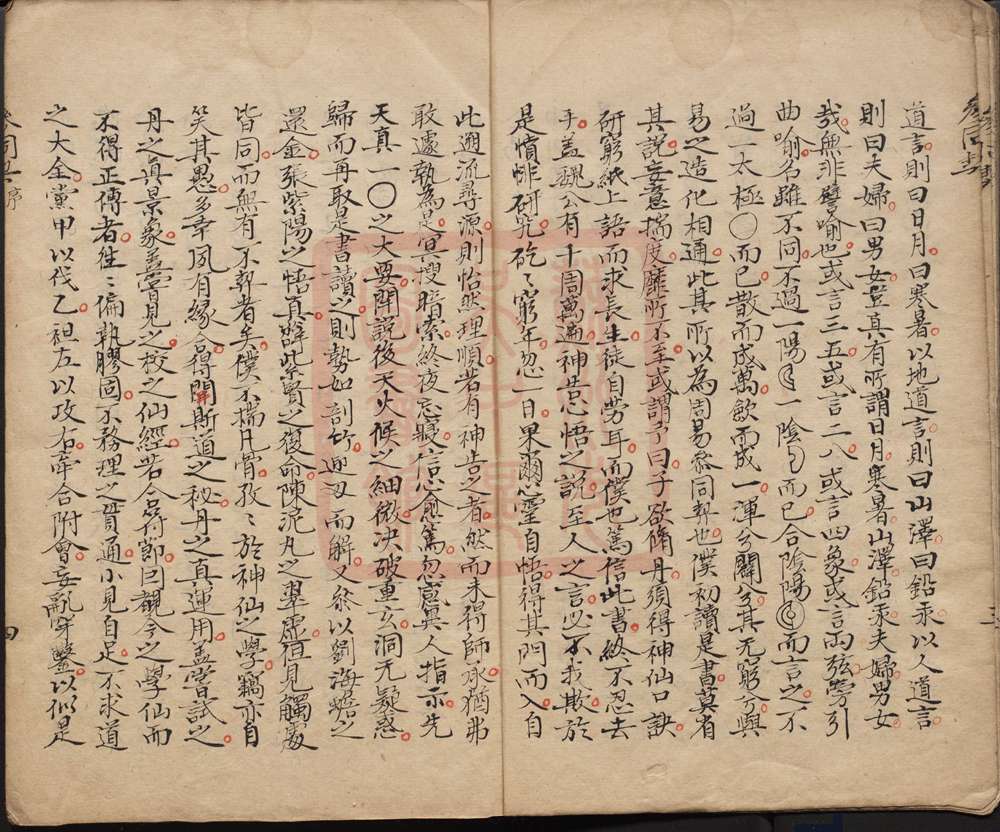 參同契
道言則曰日月曰寒暑以地道言則曰山澤曰鉛汞以人道言
則曰夫婦曰男女豈真有所謂日月寒暑山澤鉛汞夫婦男女
哉無非譬喻也或言三五或言二八或言四象或言兩弦旁引
曲喻名雖不同不過一陽一陰而已合陰陽而言之不
過一太極〇而已散而成萬歛而成一渾兮闢兮其无窮兮與
易之造化相通此其所以為周易參同契也僕初讀是書莫省
其說妄意揣度靡所不至或謂予曰子欲脩丹須得神仙口訣
研窮紙上語而求長生徒自勞耳而僕也篤信此書終不忍去
手盖魏公有千周萬遍神告心悟之說至人之言必不我欺於
是憤悱研究矻〻窮年忽一日果爾心靈自悟得其門而入自
此遡流尋源則怡然理順若有神告之者然而未得師承猶弗
敢遽執為是冥搜暗索終夜忘寢信愈篤忽感異人指示先
天真一〇之大要開說後天火候之細微決破重玄洞无疑惑
歸而再取是書讀之則勢如剖竹迎刃而解又參以劉海蟾之
還金張紫陽之悟真薛紫賢之復命陳泥丸之翠虛但見觸處
皆同而無有不契者矣僕不揣凡骨孜〻於神仙之學竊亦自
笑其愚多幸夙有緣合得聞斯道之秘丹之真運用盖嘗試之
丹之真景象盖嘗見之校之仙經若合符節回觀今之學仙而
不得正傳者往〻偏執膠固不務理之貫通小見自足不求道
之大全黨甲以伐乙袒左以攻右牽合附會妄亂穿鑿以似是
序
四